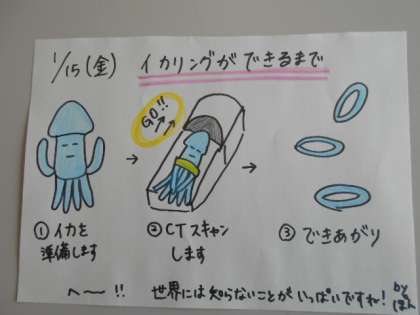 1/15(金) イカリングができるまで
GO!!
①イカを
準備します
②CTスキャン
します
③できあがり
へ〜!! 世界には知らないことがいっぱいですね!
by
ぽん